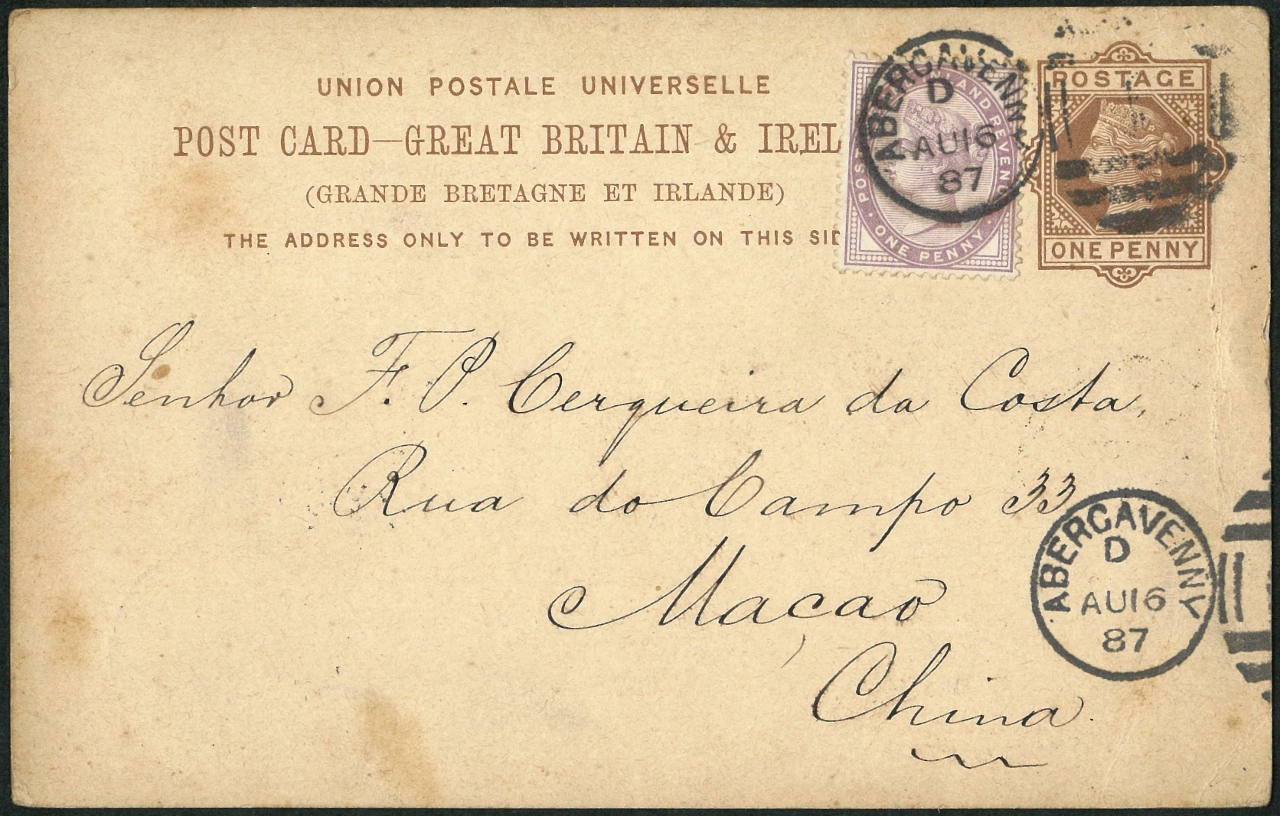 UNION POSTALE UNIVERSELLE
POST CARD—GREAT BRITAIN & IREL
(GRANDE BRETAGNE ET IRLANDE)
THE ADDRESS ONLY TO BE WRITTEN ON THIS SID
POS AND REVENU
ONE PENNY
ABERGAVENNY
D
AU16
87
POSTAGE
ONE PENNY
Senhor F. P. Cerqueira da Costa,
Rua do Campo 33
Macao
China
ABERGAVENNY
D
AU16
87